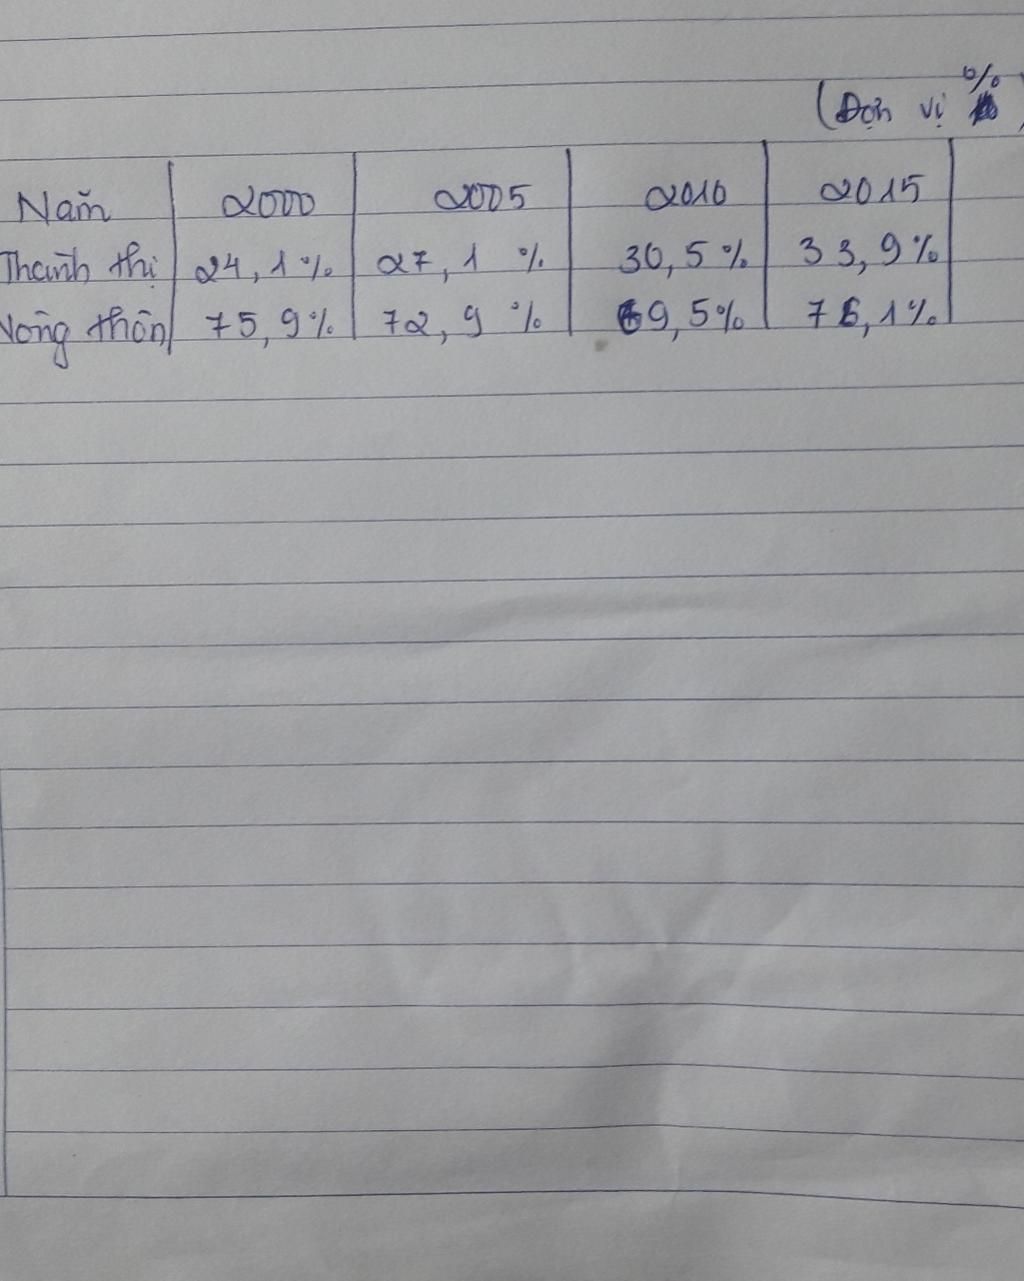 (Đơn vị %)
Năm 2000 2005 2010 2015
Thành thị 24,1% 27,1 % 30,5% 33,9%
Nông thôn 75,9% 72,9 % 69,5% 76,1%